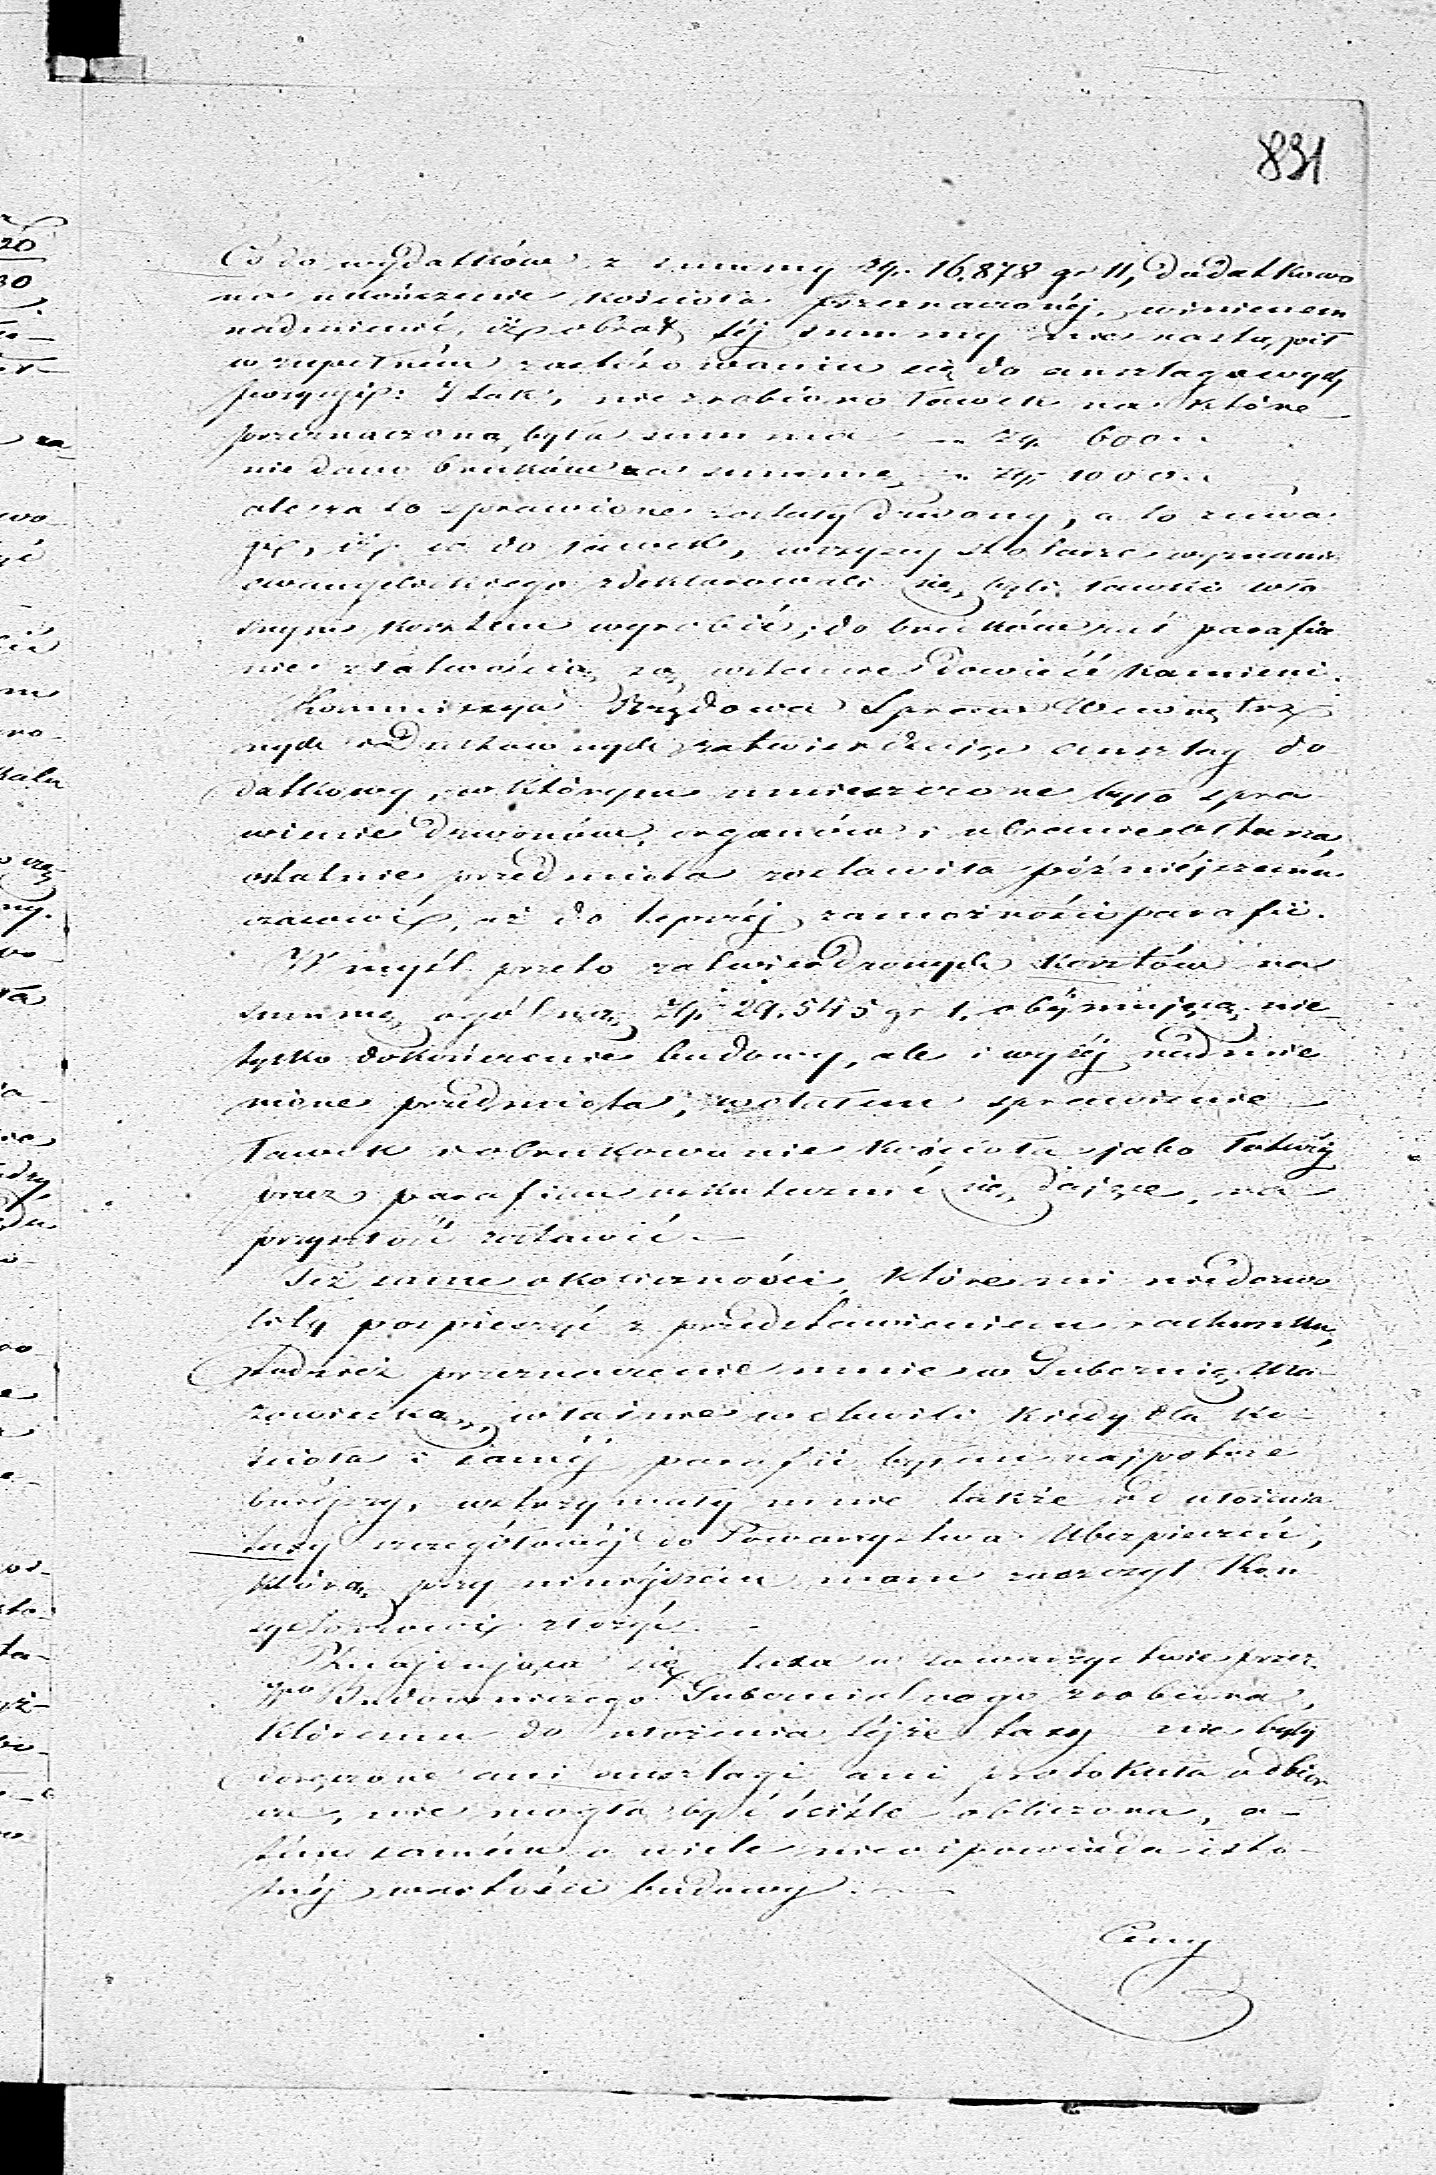 831
Co do wydatków z summy Złp. 16,878 gr 11, dodatkowo
na ukończenie kościoła przeznaczonéj, winienem
nadmienić, iż obrót téj summy nie nastąpił
w zupełném zastósowaniu się do anszlagowych
pozycyi: I tak, nie zrobiono ławek na które
przeznaczoną była summa „ Złp. 600 „
nie dano bruków za summę „ Złp. 1000 „
ale za to sprawione zostały dzwony, a to zuwa
gi, iż co do ławek, wszyscy stolarze wyznania
ewangelickiego zdeklarowali się byli ławki wła
snym kosztem wyrobić, do bruków zaś parafia
nie z łatwością są wstanie dowieść kamieni.
Kommissya Rządowa Spraw Wewnętrz
nych i Duchownych zatwierdzając anszlag do
datkowy, w którym umieszczone było spra
wienie dzwonów, organów i ubranie ołtarza
ostatnie przedmiota zostawiła późniéjszemu
czasowi, aż do lepszéj zamożności parafii.
W myśl przeto zatwierdzonych kosztów na
summę ogólną Złp. 29,545 gr 1, obéjmującą nie
tylko dokończenie budowy, ale i wyżéj nadmie
nione przedmiota, wolałem sprawienie
ławek i obrukowanie kościoła jako łatwiéj
przez parafian uskutecznić się dające, na
przyszłość zostawić. —
Też same okoliczności, które mi niedozwo
liły pospieszyć z przedstawieniem rachunku,
tudzież przeznaczenie mnie w Gubernię Ma-
zowiecką, właśnie w chwili kiedy dla ko-
ścioła i saméj parafii byłem najpotrze
bniéjszy, wstrzymały mnie także od ułożenia
taxy szczegółowéj do Towarzystwa Ubezpieczeń,
którą przy niniéjszém mam zaszczyt Kon
systorzowi złożyć. —
Znajdująca się taxa w towarzystwie przez
Budowniczego Gubernialnego zrobiona,
któremu do ułożenia téjże taxy nie były
doręczone ani anszlagi ani protokuła odbior
cze, nie mogła być ściśle obliczona, a-
tém samém o wiele nieodpowiada isto-
tnéj wartości budowy. —
Ceny